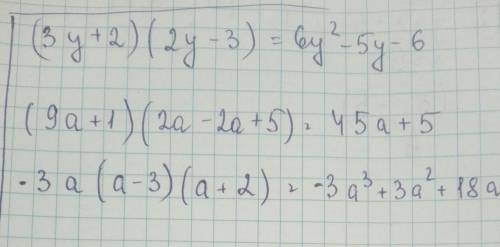 (3y+2)(2y-3) = 6y²-5y-6
(9a+1)(2a-2a+5) = 45a+5
-3a(a-3)(a+2) = -3a³+3a²+18a